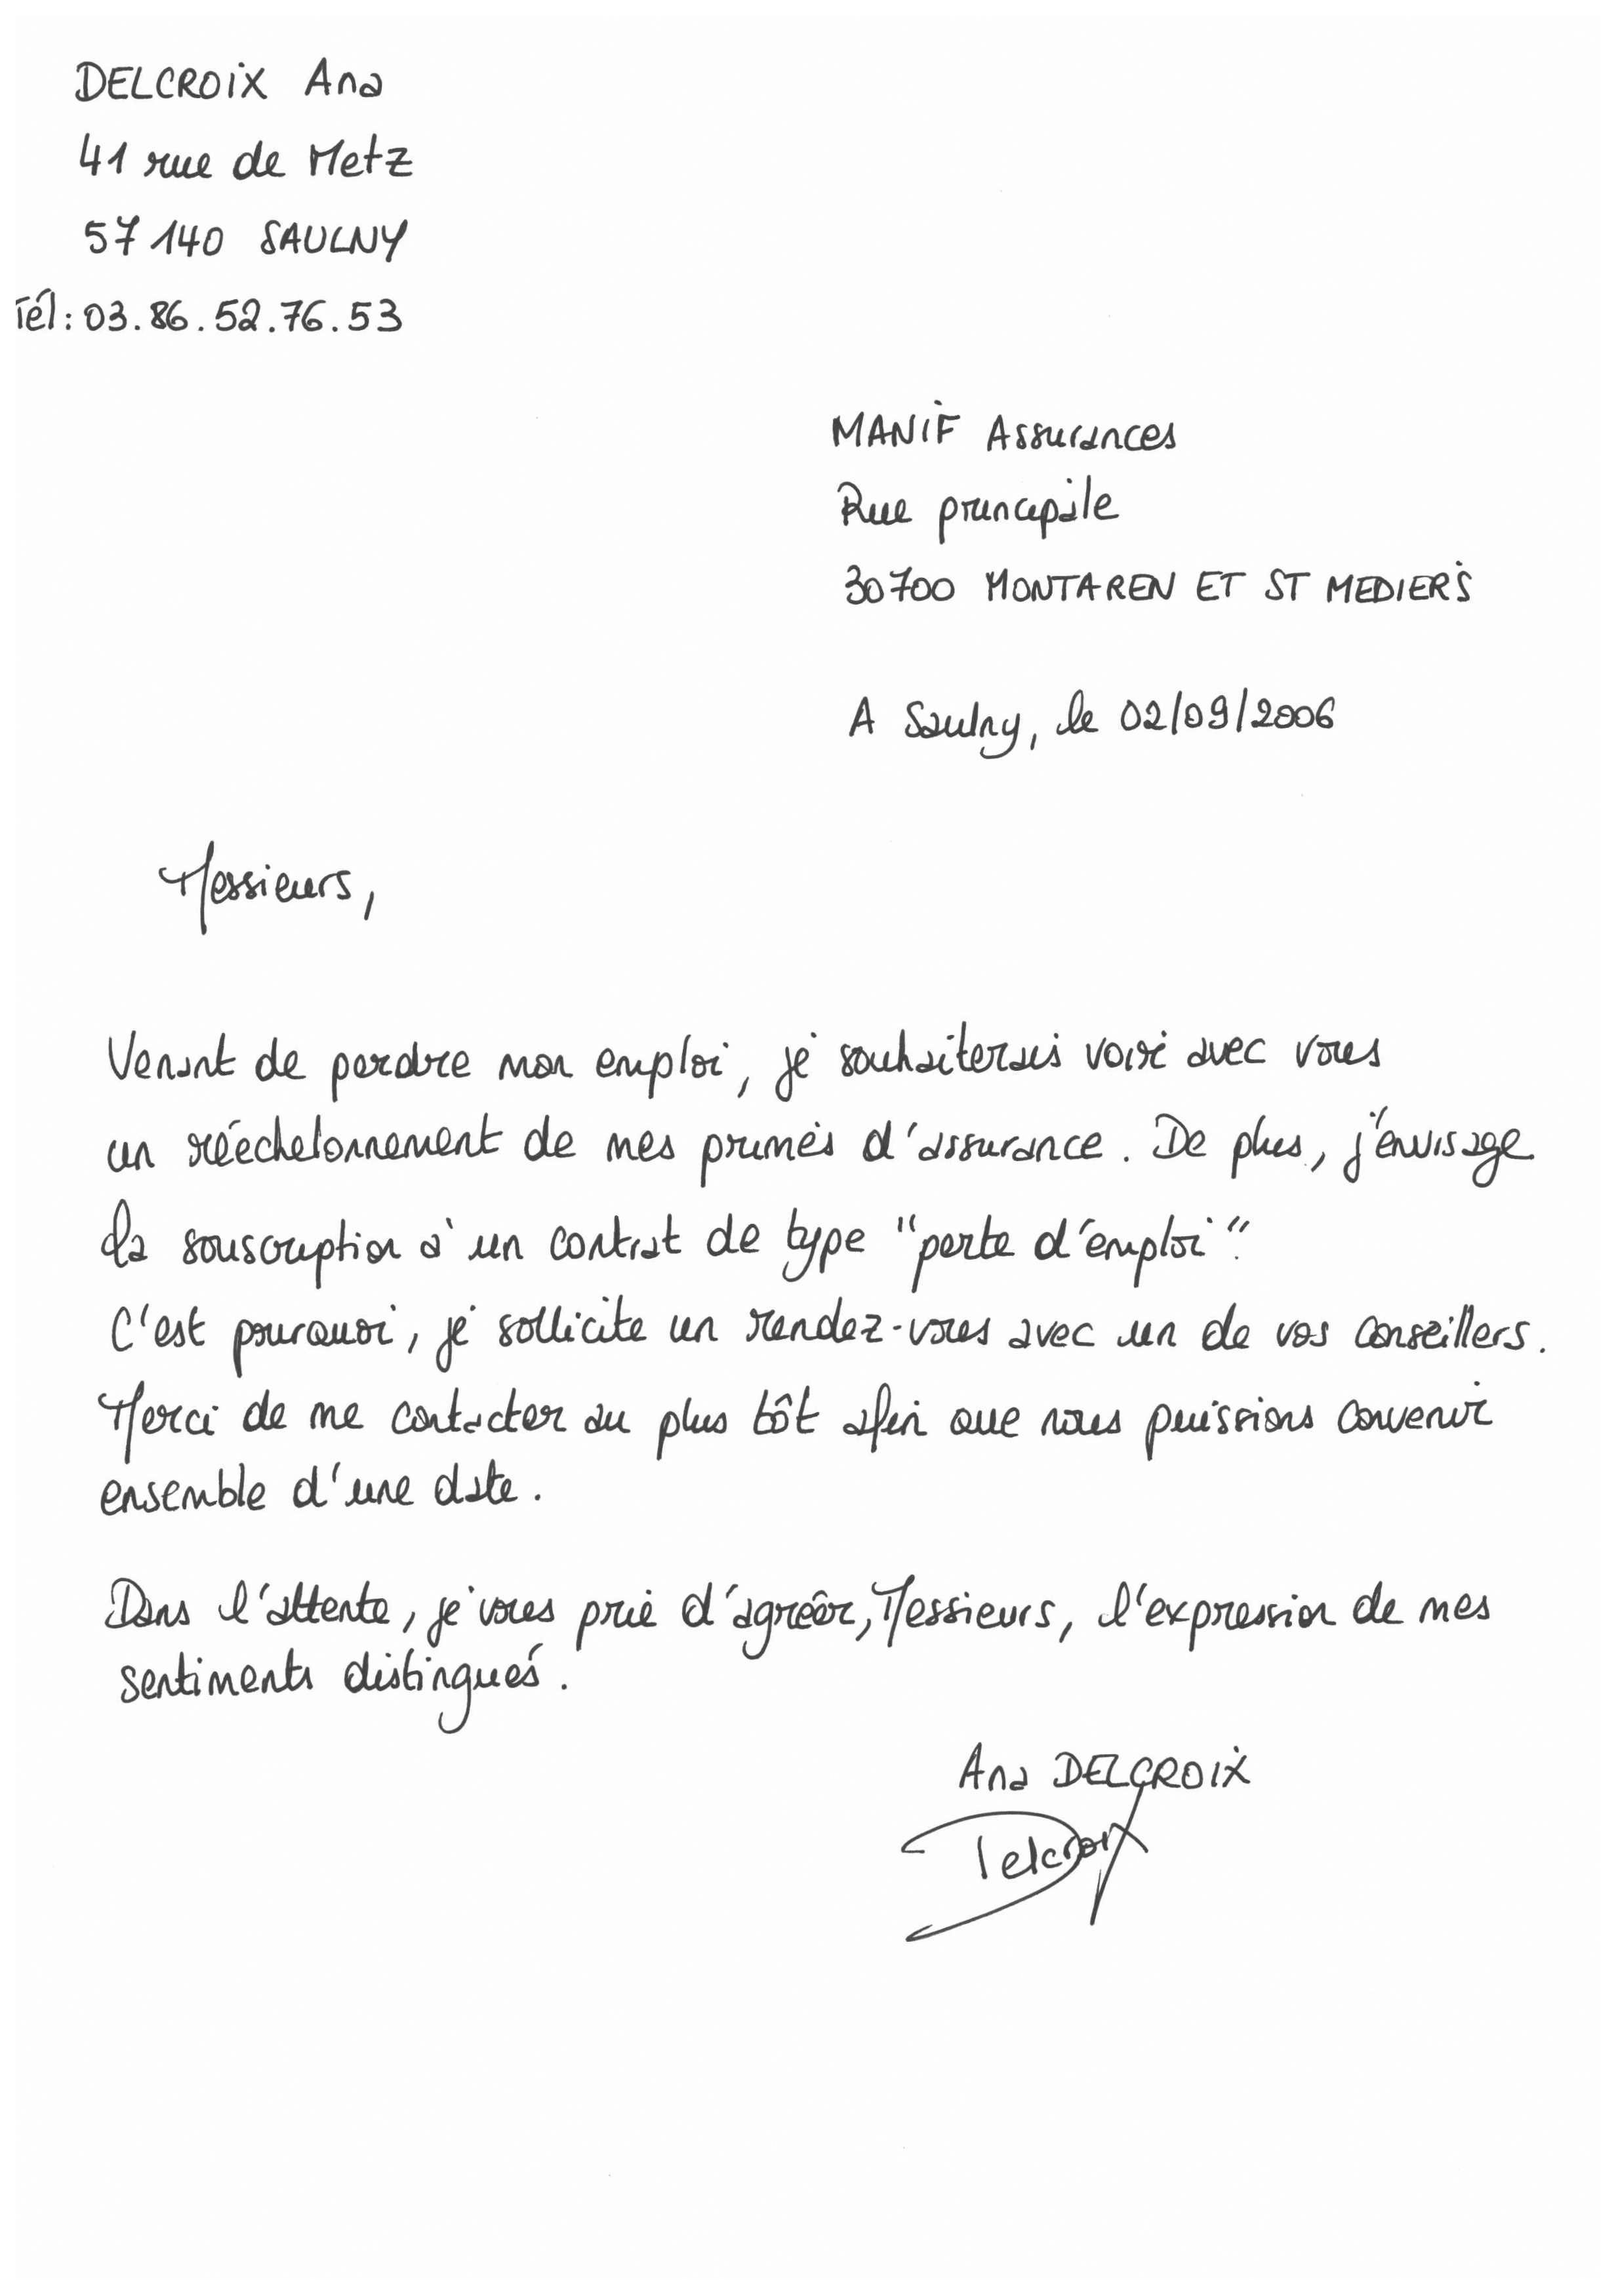 DELCROIX Ana
41 rue de Metz
57140 SAULNY
Tél: 03.86.52.76.53
MANIF Assurances
Rue principale
30700 MONTAREN ET ST MEDIERS
A Saulny, le 02/09/2006
Messieurs,
Venant de perdre mon emploi, je souhaiterais voir avec vous
un rééchelonnement de mes primes d'assurance. De plus, j'envisage
la souscription à un contrat de type "perte d'emploi".
C'est pourquoi, je sollicite un rendez-vous avec un de vos conseillers.
Merci de me contacter au plus tôt afin que nous puissions convenir
ensemble d'une date.
Dans l'attente, je vous prie d'agréer, Messieurs, l'expression de mes
sentiments distingués.
Ana DELCROIX
Delcroix